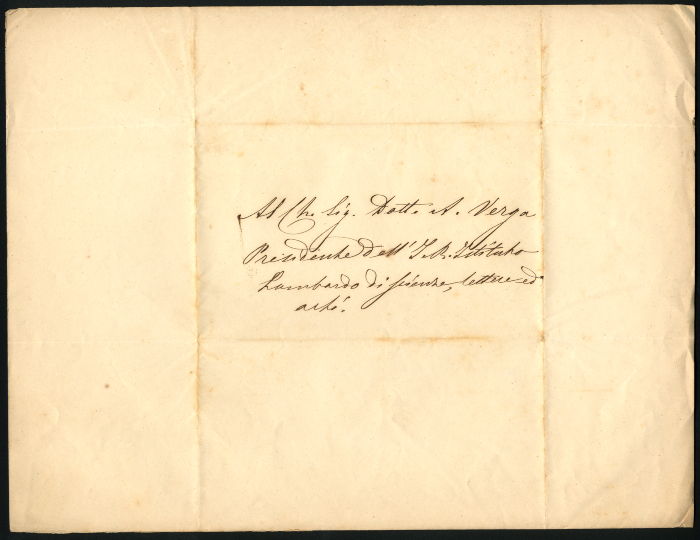 Al Ch. Sig. Dott. A. Verga
Presidente dell' I. R. Istituto
Lombardo di scienze, lettere ed
arti.